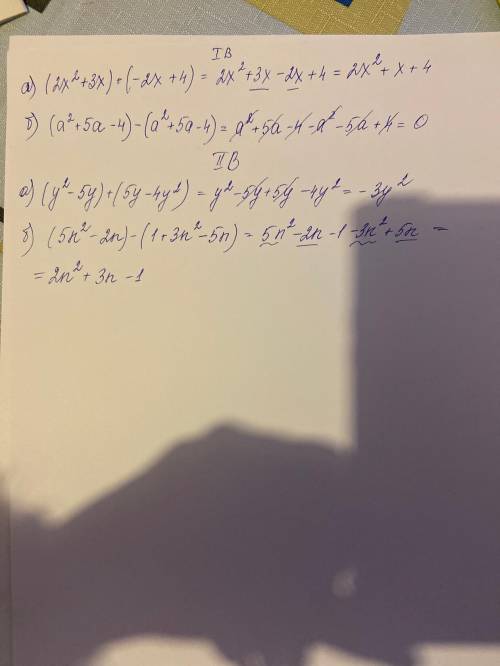 I В
а) (2x²+3x)+(-2x+4) = 2x²+3x-2x+4 = 2x²+x+4
б) (a²+5a-4)-(a²+5a-4)= a²+5a-4-a²-5a+4=0
II В
а) (y²-5y)+(5y-4y²) = y²-5y+5y-4y²=-3y²
б) (5n²-2n)-(1+3n²-5n)=5n²-2n-1-3n²+5n =
=2n²+3n-1